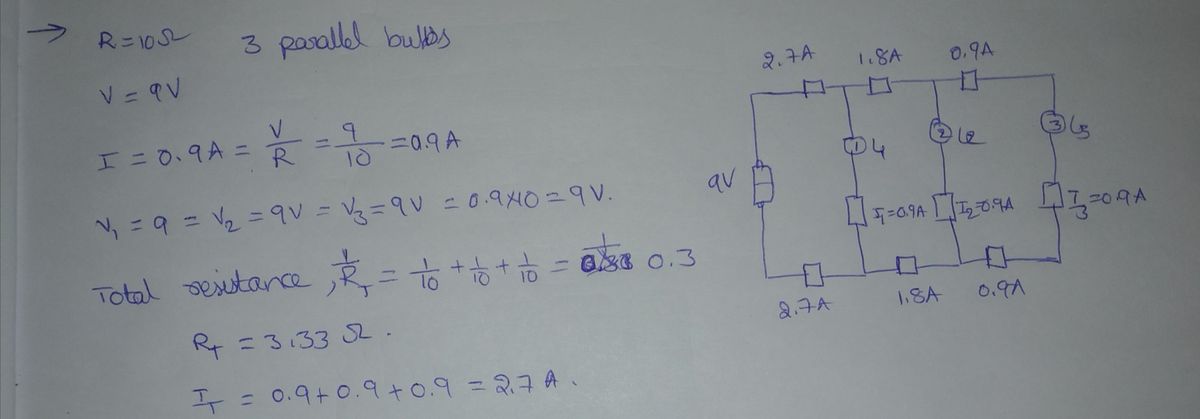 → R=10Ω 3 parallel bulbs
V = 9V
I = 0.9A = V/R = 9/10 = 0.9A
V₁ = 9 = V₂ = 9V = V₃ = 9V = 0.9×10 = 9V.
Total resistance, 1/R_T = 1/10 + 1/10 + 1/10 = 0.3
R_T = 3.33 Ω.
I_T = 0.9+0.9+0.9 = 2.7 A.
2.7A 1.8A 0.9A
① ② L2 ③
9V
I₁=0.9A I₂=0.9A I₃=0.9A
2.7A 1.8A 0.9A